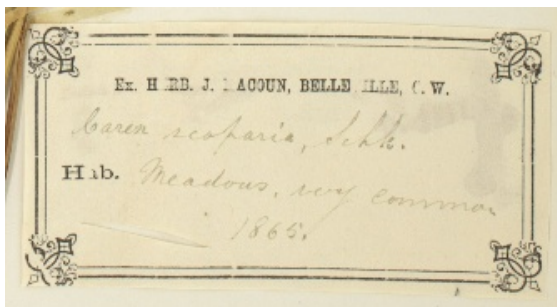 Ex. HERB. J. MACOUN, BELLEVILLE, C. W.
Carex scoparia, Schk.
Hab. Meadows, very common
1865.